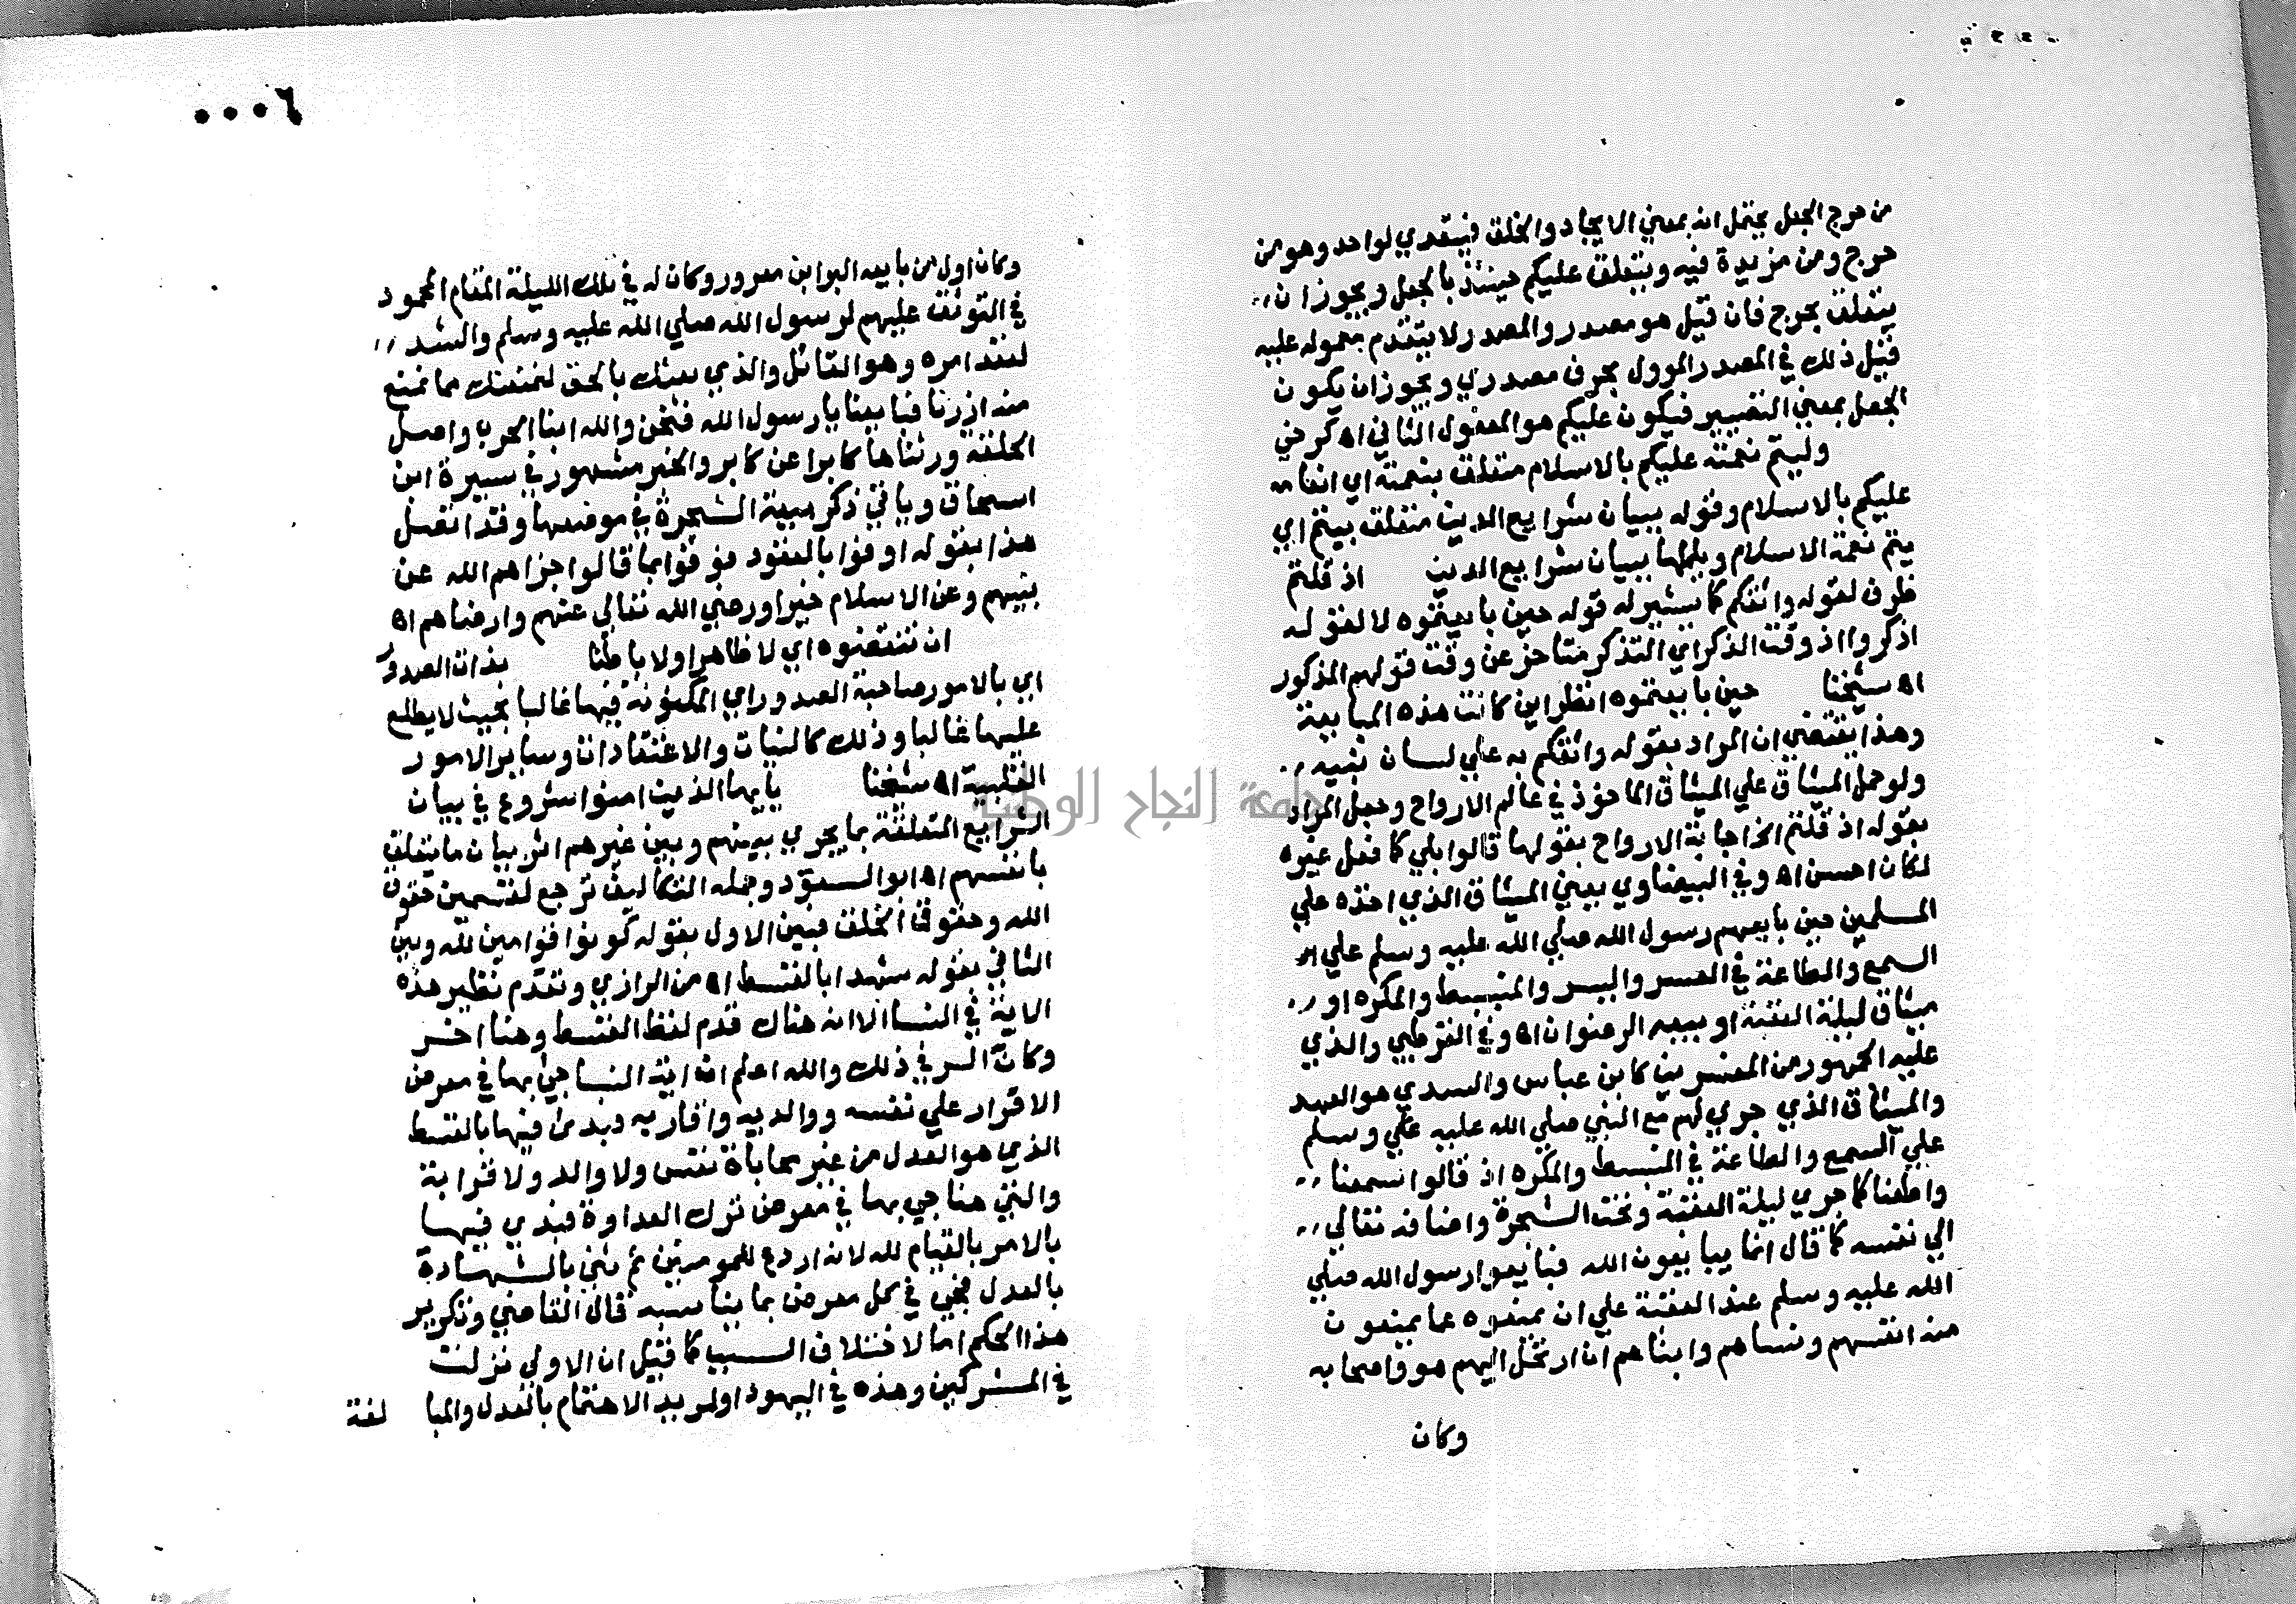 من حرج الجعل يحتمل انه بمعني الايجاد والخلق فيتعدي لواحد وهو من
حرج ومن مزيدة فيه ويتعلق عليكم حينئذ بالجعل ويجوز ان
يتعلق بحرج فان قيل هو مصدر والمصدر لا يتقدم معموله عليه
قيل ذلك في المصدر الموول بحرف مصدري ويجوز ان يكون
الجعل بمعني التصيير فيكون عليكم هو المفعول الثاني اه كرخي
وليتم نعمته عليكم بالاسلام متعلق بنعمته اي انعامه
عليكم بالاسلام وقوله ببيان شرايع الدين متعلق بيتم اي
يتم نعمة الاسلام ويكملها ببيان شرايع الدين اذ قلتم
ظرف لقوله واثقكم كما يشير له قوله حين بايعتموه لا لقوله
اذكروا اذ وقت الذكر اي التذكر متاخر عن وقت قولهم المذكور
اه شيخنا حين بايعتموه انظر اين كانت هذه المبايعة
وهذا يقتضي ان المراد بقوله واثقكم به علي لسان نبيه
ولو حمل الميثاق علي الميثاق الماخوذ في عالم الارواح وجعل المراد
بقوله اذ قلتم الخ اجابة الارواح بقولها قالوا بلي كما فعل غيره
لكان احسن اه وفي البيضاوي يعني الميثاق الذي اخذه علي
المسلمين حين بايعهم رسول الله صلي الله عليه وسلم علي
السمع والطاعة في العسر واليسر والمنشط والمكره او
ميثاق ليلة العقبة او بيعة الرضوان اه وفي القرطبي والذي
عليه الجمهور من المفسرين كابن عباس والسدي هو العهد
والميثاق الذي جري لهم مع النبي صلي الله عليه علي وسلم
علي السمع والطاعة في المنشط والمكره اذ قالوا سمعنا
واطعنا كما جري ليلة العقبة وتحت الشجرة واضافه تعالي
الي نفسه كما قال انما يبايعون الله فبايعوا رسول الله صلي
الله عليه وسلم عند العقبة علي ان يمنعوه مما يمنعون
منه انفسهم ونساهم وابناهم ان ارتحل اليهم هو واصحابه
وكان
٠٠٠٦
وكان اول من بايعه البرا ابن معرور وكان له في تلك الليلة المقام المحمود
في التوثق عليهم لرسول الله صلي الله عليه وسلم والشد
لعقد امره وهو القائل والذي بعثك بالحق لنمنعنك مما نمنع
منه ازرنا فبايعنا يا رسول الله فنحن والله ابنا الحرب واهل
الحلقة ورثناها كابرا عن كابر والخبر مشهور في سيرة ابن
اسحاق وياتي ذكر بيعة الشجرة في موضعها وقد اتصل
هذا بقوله اوفوا بالعقود فوفوا بما قالوا جزاهم الله عن
نبيهم وعن الاسلام خيرا ورضي الله تعالي عنهم وارضاهم اه
ان تنقضوه اي لا ظاهرا ولا باطنا بذات الصدور
اي بالامور صاحبة الصدور اي المكنونة فيها غالبا بحيث لا يطلع
عليها غالبا وذلك كالنيات والاعتقادات وساير الامور
القلبية اه شيخنا يايها الذين امنوا شروع في بيان
الشرايع المتعلقة بما يجري بينهم وبين غيرهم اثر بيان ما يتعلق
بانفسهم اه ابو السعود وجملة التكاليف ترجع لقسمين حقوق
الله وحقوق الخلق فبين الاول بقوله كونوا قوامين لله وبين
الثاني بقوله شهدا بالقسط اه من الرازي وتقدم نظير هذه
الاية في النسا الا ان هناك قدم لفظ القسط وهنا اخر
وكان السر في ذلك والله اعلم ان اية النسا جئ بها في معرض
الاقرار علي نفسه ووالديه واقاربه فبدئ فيها بالقسط
الذي هو العدل من غير محاباة نفس ولا والد ولا قرابة
والتي هنا جي بها في معرض ترك العداوة فبدي فيها
بالامر بالقيام لله لانه اردع للمومنين ثم ثني بالشهادة
بالعدل فجي في كل معرض بما يناسبه قال القاضي وتكرير
هذا الحكم اما لاختلاف السبب كما قيل ان الاولي نزلت
في المشركين وهذه في اليهود او لمزيد الاهتمام بالعدل والمبا لغة
جامعة النجاح الوطنية